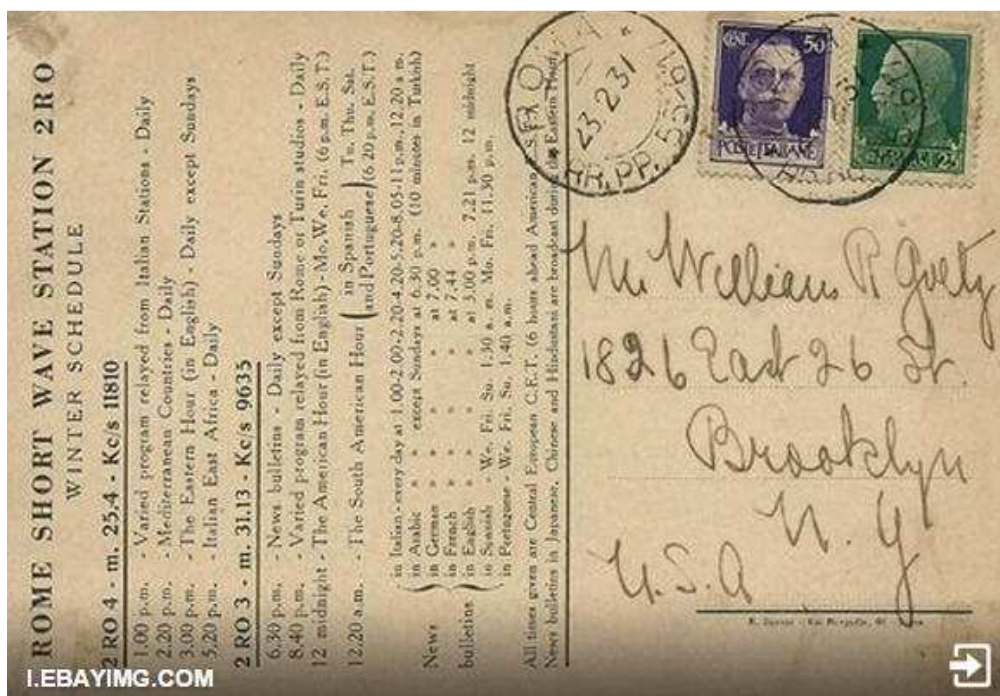 ROME SHORT WAVE STATION 2RO
WINTER SCHEDULE
2 RO 4 - m. 25.4 - Kc/s 11810
1.00 p.m. - Varied program relayed from Italian Stations - Daily
2.20 p.m. - Mediterranean Countries - Daily
3.00 p.m. - The Eastern Hour (in English) - Daily except Sundays
5.20 p.m. - Italian East Africa - Daily
2 RO 3 - m. 31.13 - Kc/s 9635
6.30 p.m. - News bulletins - Daily except Sundays
8.40 p.m. - Varied program relayed from Rome or Turin studios - Daily
12 midnight - The American Hour (in English) - Mo. We. Fri. (6 p.m. E.S.T.)
12.20 a.m. - The South American Hour ( in Spanish ) Tu. Thu. Sat.
and Portuguese (6.20 p.m. E.S.T.)
News bulletins
in Italian - every day at 1.00-2.00-2.20-4.20-5.20-8.05-11 p.m., 12.20 a m.
in Arabic » » except Sundays at 6.30 p.m. (10 minutes in Turkish)
in German » » » » at 7.00 »
in French » » » » at 7.44 »
in English » » » » at 3.00 p.m. 7.21 p.m. 12 midnight
in Spanish - We. Fri. Su. 1.30 a. m. Mo. Fri. 11.30 p.m.
in Portuguese - We. Fri. Su. 1.40 a.m.
All times given are Central European C.E.T. (6 hours ahead American E.S.T.)
News bulletins in Japanese, Chinese and Hindustani are broadcast during the Eastern Hour.
ROMA
23.2 31
AR.PP.
CENT. 50
POSTE ITALIANE
Mr William R Goetz
1826 East 26 St.
Brooklyn
N. Y
U.S.A
I.EBAYIMG.COM